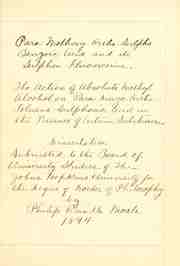 Para Methoxy Ortho Sulpho
Benzoic Acid and its
Sulphon
The Action of Absolute Methyl
Alcohol on Para Diazo Ortho
Toluene Sulphonic Acid in
the Presence of Certain Substances.
Dissertation
Submitted to the Board of
University Studies of The
Johns Hopkins University for
the degree of Doctor of Philosophy
by
Philip
1894